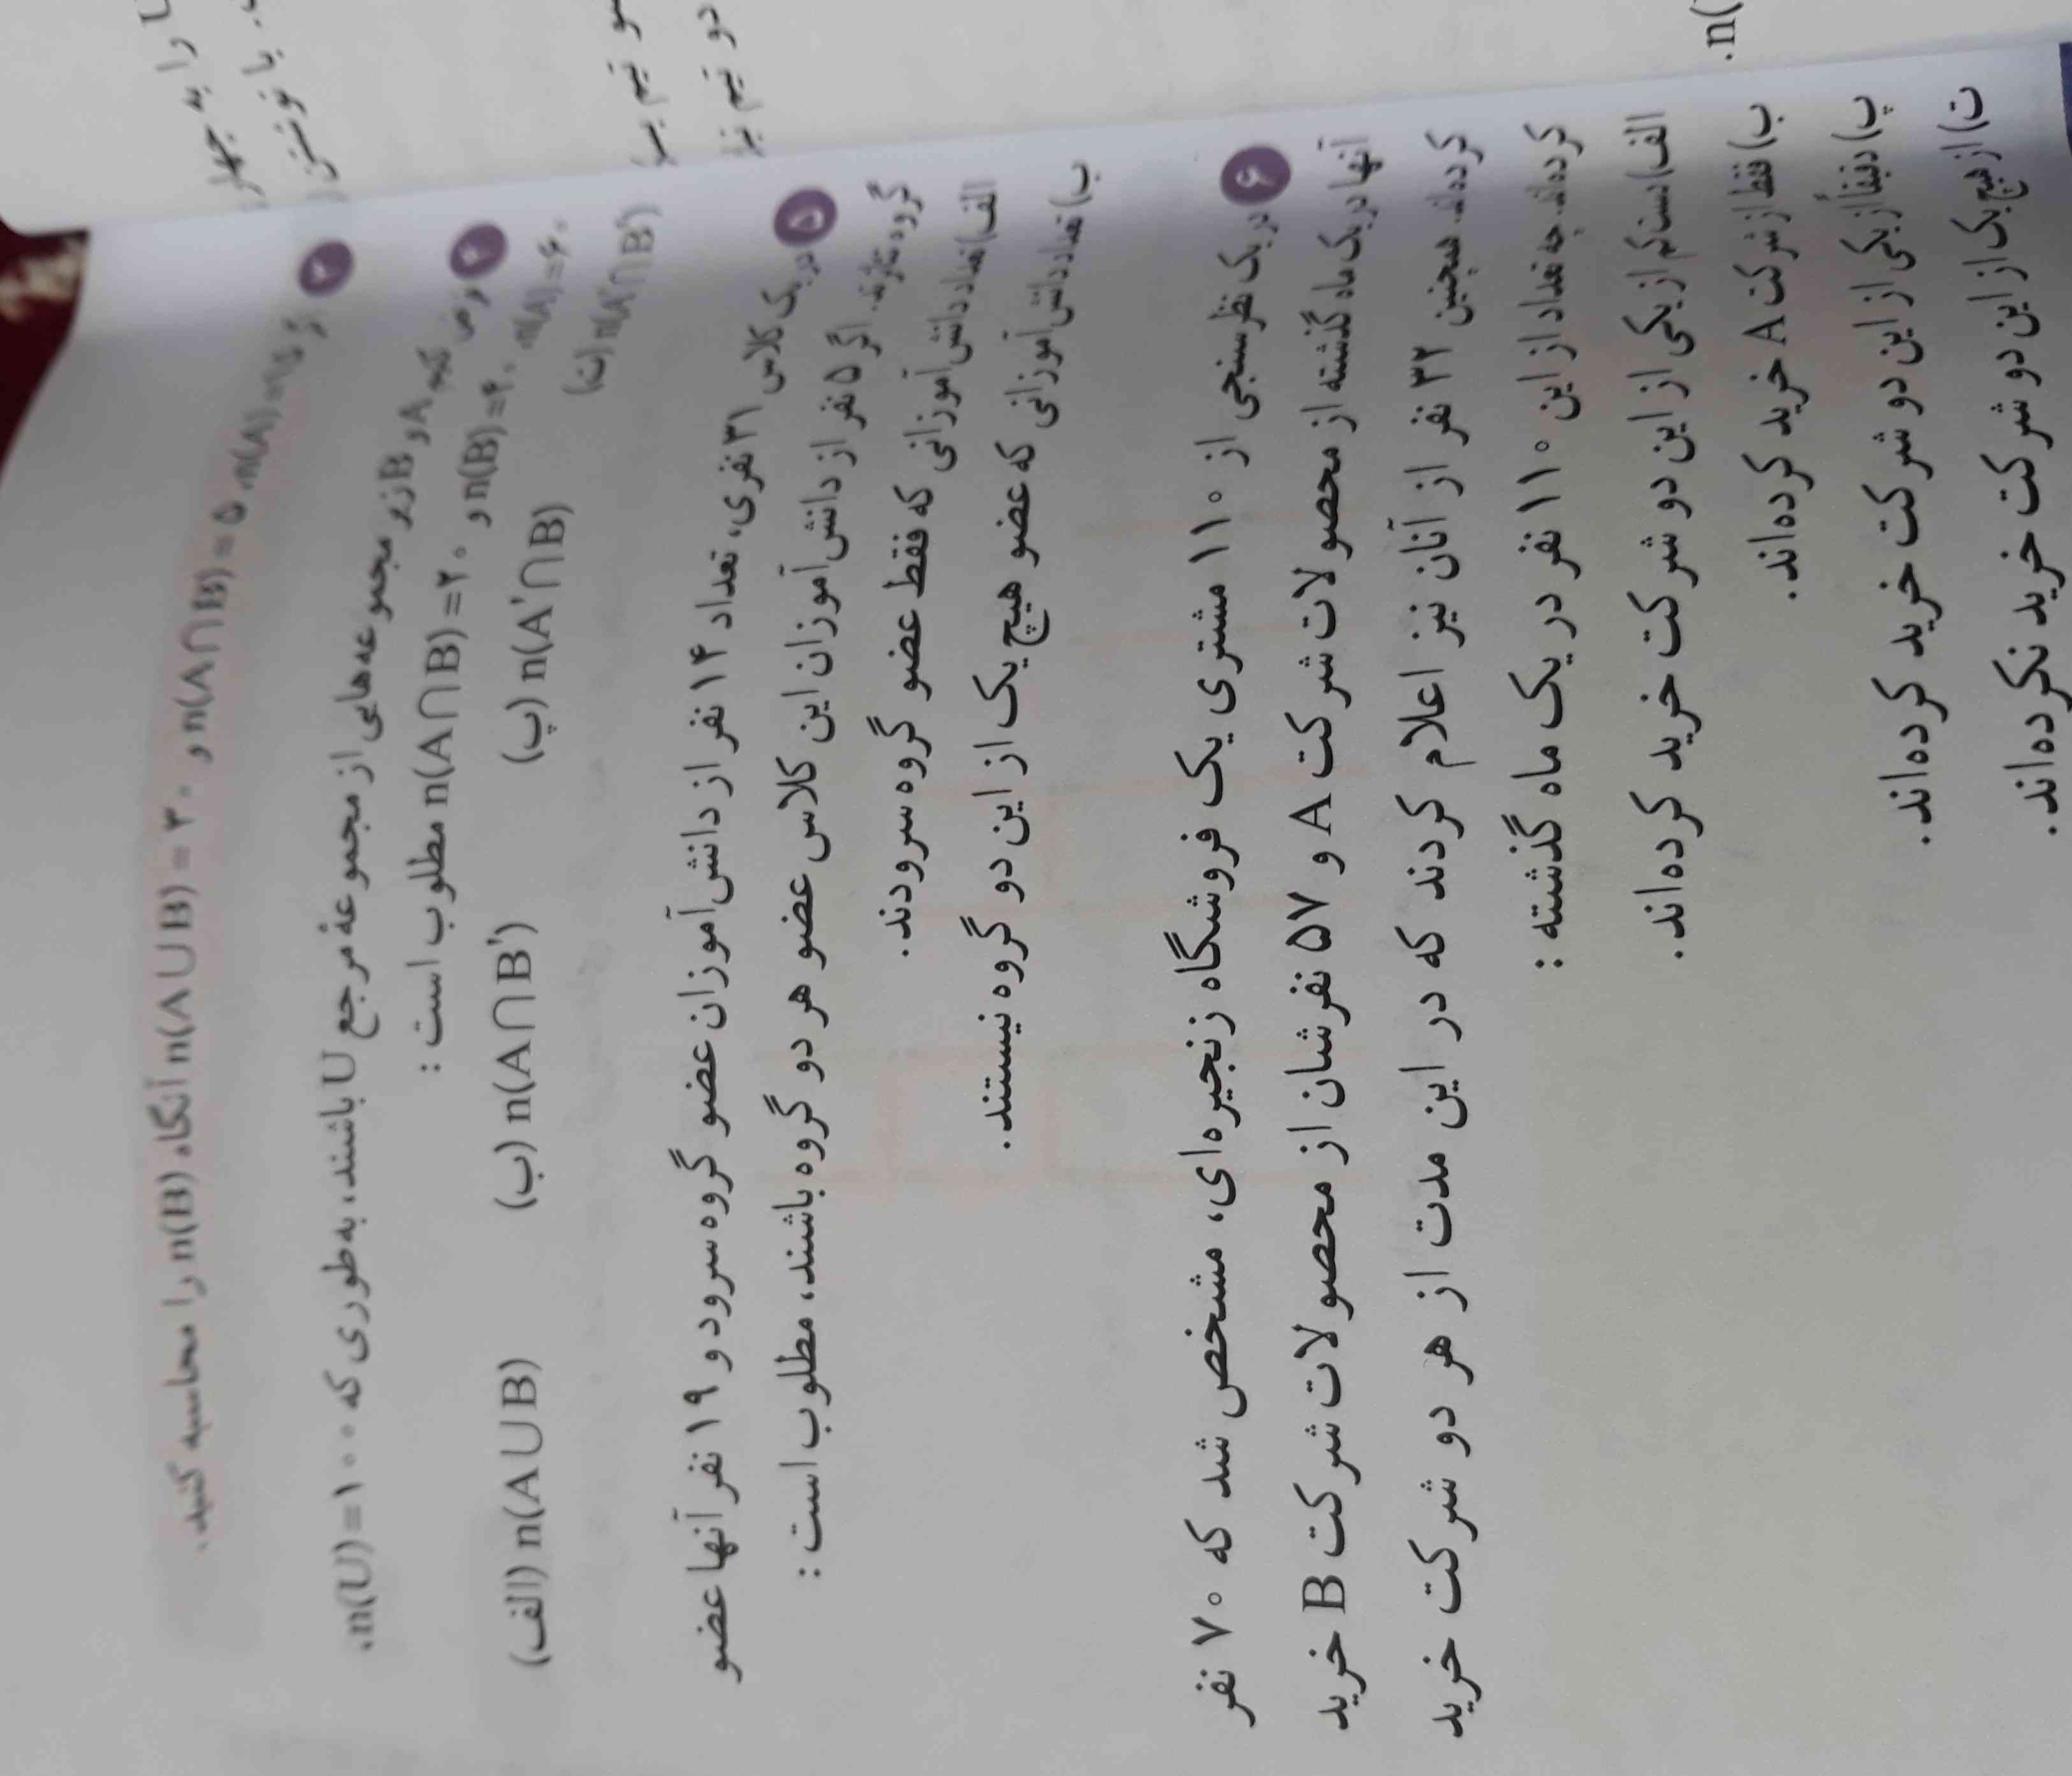 ۳ اگر n(A)=۱۵، n(A∩B)=۵ و n(A∪B)=۳۰ آنگاه n(B) را محاسبه کنید.
۴ فرض کنید A و B زیر مجموعه‌هایی از مجموعهٔ مرجع U باشند، به‌طوری که n(U)=۱۰۰،
n(A)=۶۰، n(B)=۴۰ و n(A∩B)=۲۰ مطلوب است :
الف) n(A∪B) ب) n(A∩B′) پ) n(A′∩B)
ت) n(A′∩B′)
۵ در یک کلاس ۳۱ نفری، تعداد ۱۴ نفر از دانش‌آموزان عضو گروه سرود و ۱۹ نفر آنها عضو
گروه تئاترند. اگر ۵ نفر از دانش‌آموزان این کلاس عضو هر دو گروه باشند، مطلوب است :
الف) تعداد دانش‌آموزانی که فقط عضو گروه سرودند.
ب) تعداد دانش‌آموزانی که عضو هیچ یک از این دو گروه نیستند.
۶ در یک نظرسنجی از ۱۱۰ مشتری یک فروشگاه زنجیره‌ای، مشخص شد که ۷۰ نفر
آنها در یک ماه گذشته از محصولات شرکت A و ۵۷ نفرشان از محصولات شرکت B خرید
کرده‌اند. همچنین ۳۲ نفر از آنان نیز اعلام کردند که در این مدت از هر دو شرکت خرید
کرده‌اند. چه تعداد از این ۱۱۰ نفر در یک ماه گذشته :
الف) دست کم از یکی از این دو شرکت خرید کرده‌اند.
ب) فقط از شرکت A خرید کرده‌اند.
پ) دقیقاً از یکی از این دو شرکت خرید کرده‌اند.
ت) از هیچ یک از این دو شرکت خرید نکرده‌اند.